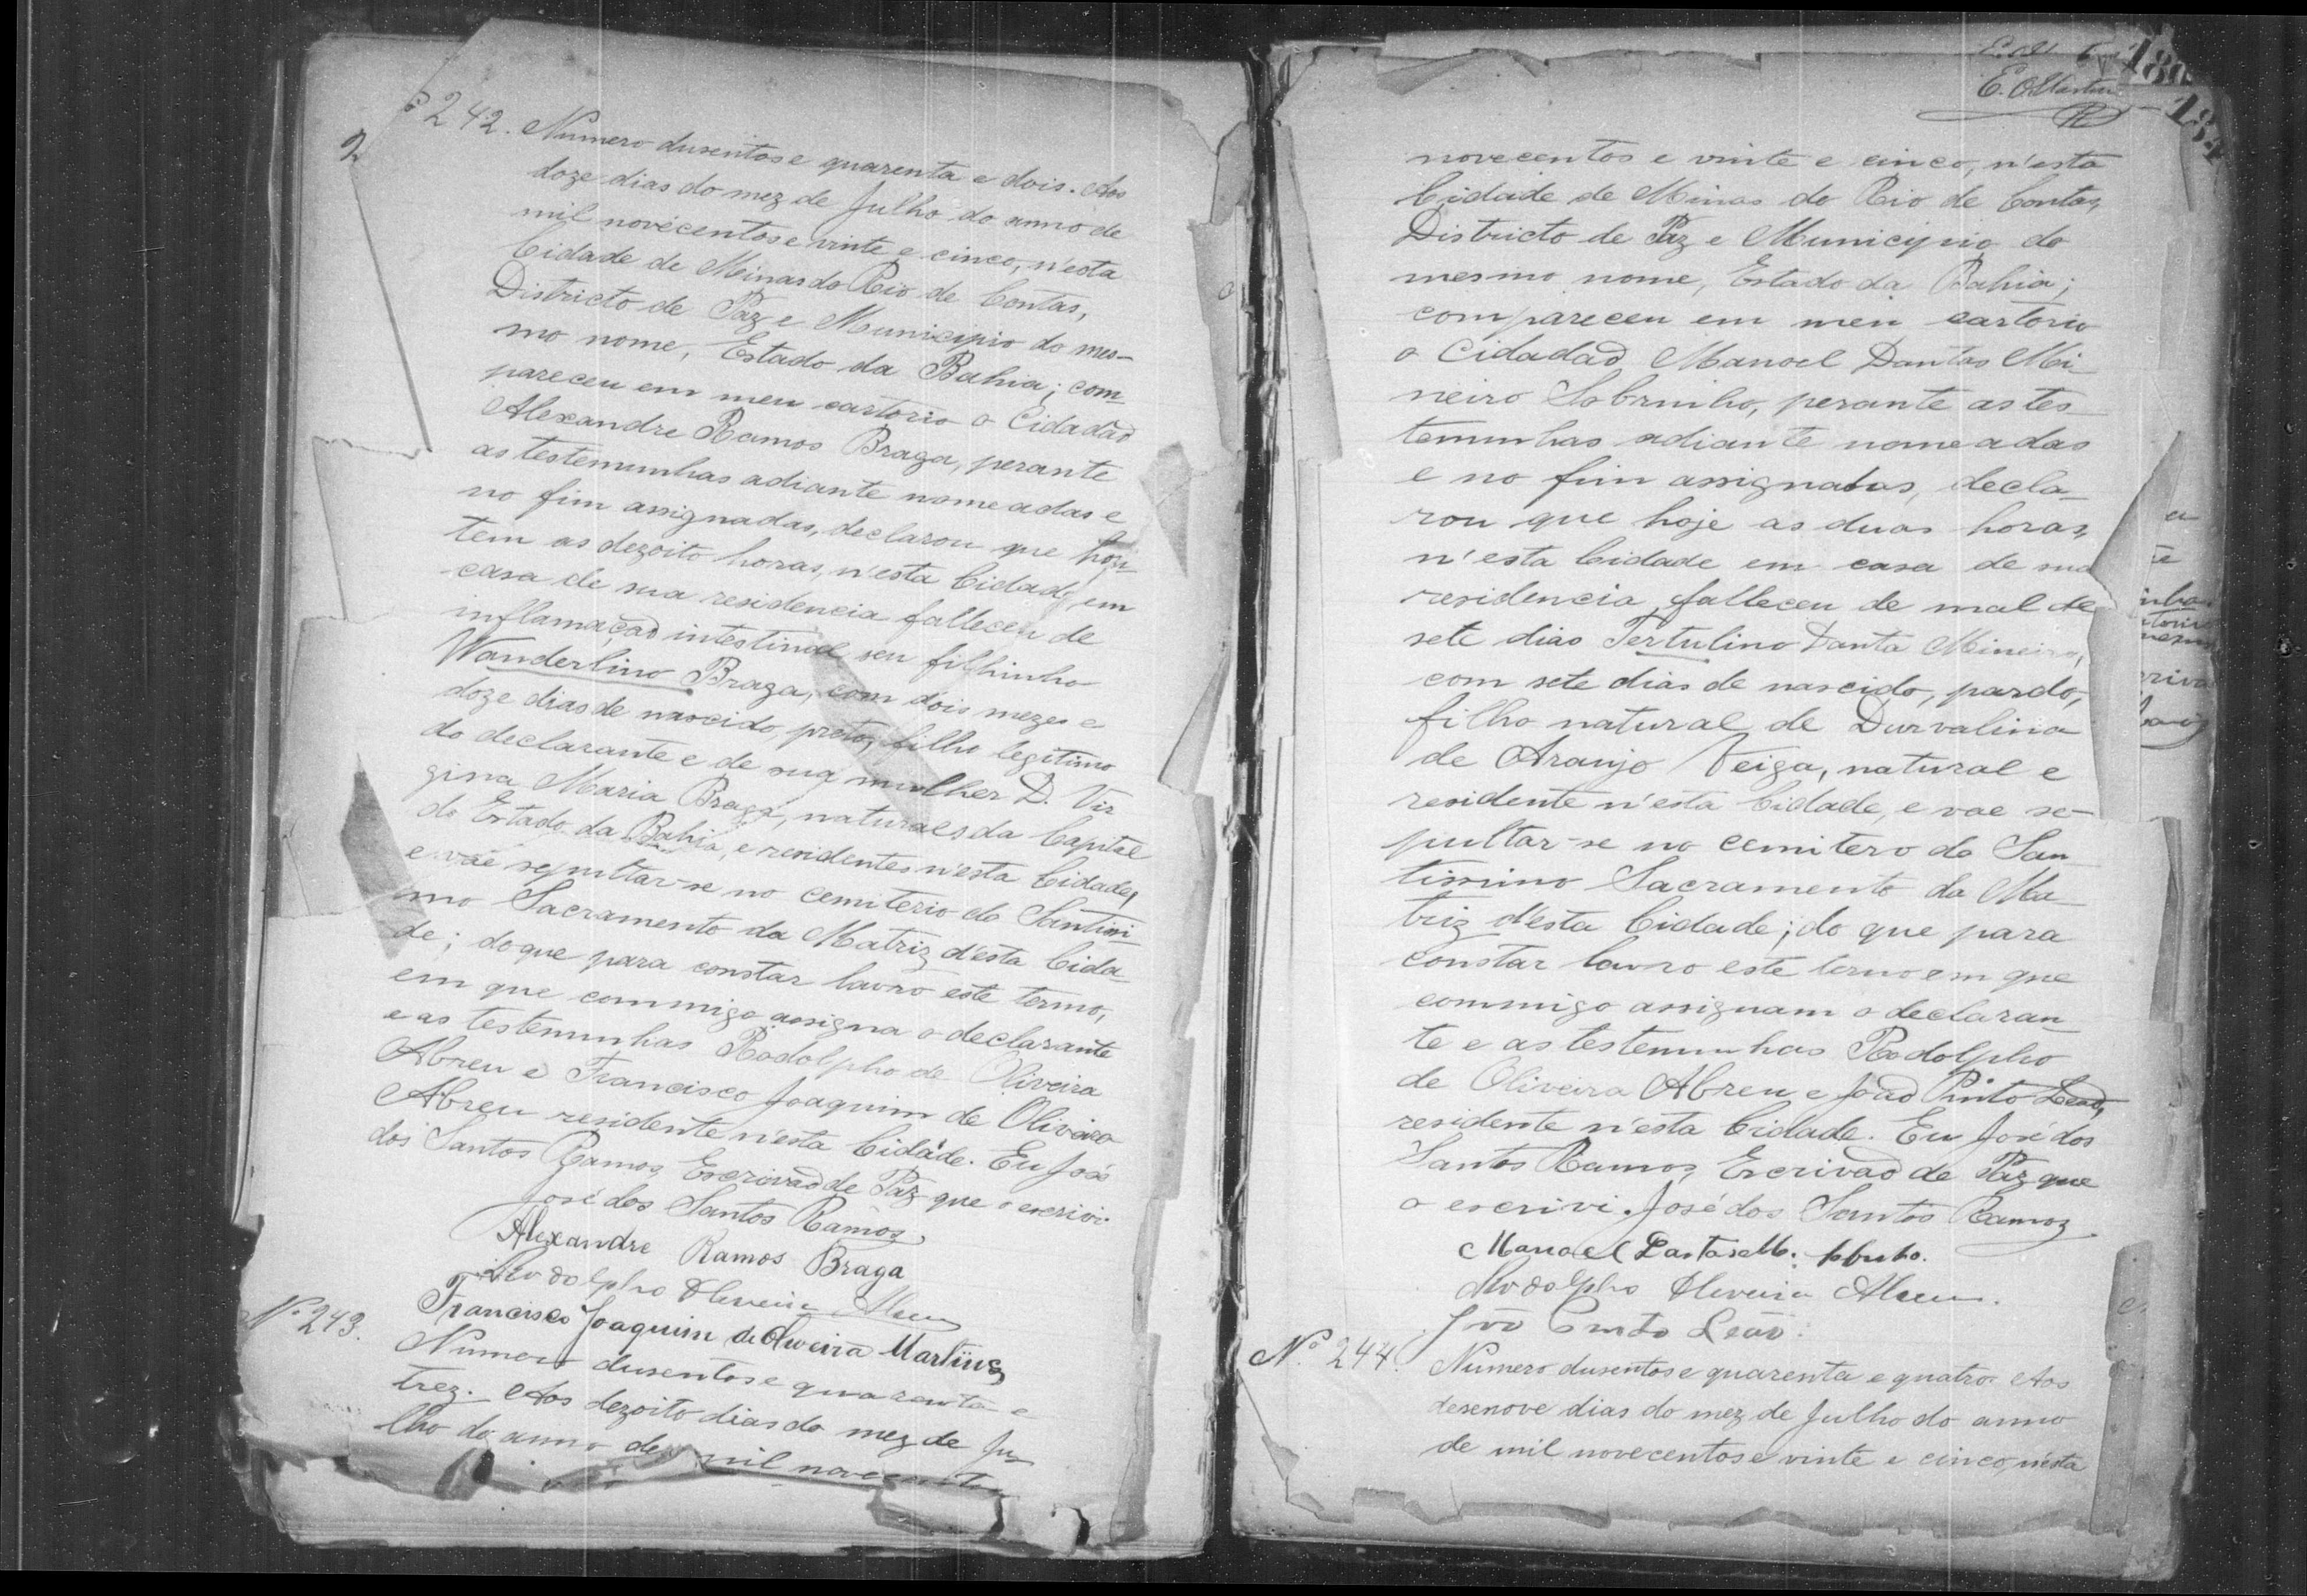 242. Numero dusentos e quarenta e dois. Aos
doze dias do mez de Julho do anno de
mil novecentos e vinte e cinco, n'esta
Cidade de Minas do Rio de Contas,
Districto de Paz e Municipio do mes-
mo nome, Estado da Bahia; com-
pareceu em meu cartorio o Cidadão
Alexandre Ramos Braga, perante
as testemunhas adiante nomeadas e
no fim assignadas, declarou que hon-
tem as dezoito horas, n'esta Cidade em
casa de sua residencia falleceu de
inflamação intestinal seu filhinho
Wanderlino Braga, com dois mezes e
doze dias de nascido, preto, filho legitimo
do declarante e de sua mulher D. Vir
gina Maria Braga, naturaes da Capital
do Estado da Bahia, e residentes n'esta Cidade,
e vae sepultar-se no cemiterio do Santissi-
mo Sacramento da Matriz d'esta Cida-
de; do que para constar lavro este termo,
em que commigo assigna o declarante
e as testemunhas Rodolpho de Oliveira
Abreu e Francisco Joaquim de Oliveira
Abreu residente n'esta Cidade. Eu José
dos Santos Ramos, Escrivão de Paz que o escrivi.
José dos Santos Ramos
Alexandre Ramos Braga
Rodolpho Oliveira Abreu
Francisco Joaquim de Oliveira Martins
Nº 243. Numero dusentos e quarenta e
trez. Aos dezoito dias do mez de Ju
lho do anno de mil novecentos
E. O. Martins
novecentos e vinte e cinco, n'esta
Cidade de Minas do Rio de Contas,
Districto de Paz e Municipio do
mesmo nome, Estado da Bahia;
compareceu em meu cartorio
o Cidadão Manoel Dantas Mi-
neiro Sobrinho, perante as tes-
temunhas adiante nomeadas
e no fim assignadas, decla-
rou que hoje as duas horas,
n'esta Cidade em casa de sua
residencia, falleceu de mal de
sete dias Tertulino Danta Mineiro,
com sete dias de nascido, pardo,
filho natural de Durvalina
de Araujo Veiga, natural e
residente n'esta Cidade, e vae se-
pultar-se no cemitero do San
tissimo Sacramento da Ma-
triz d'esta Cidade; do que para
constar lavro este termo em que
commigo assignam o declaran-
te e as testemunhas Rodolpho
de Oliveira Abreu e João Pinto Leão,
residente n'esta Cidade. Eu José dos
Santos Ramos, Escrivão de Paz que
o escrivi. José dos Santos Ramos
Manoel Dantas M. Sobrinho.
Rodolpho Oliveira Abreu.
João Pinto Leão.
Nº 244. Numero dusentos e quarenta e quatro. Aos
desenove dias do mez de Julho do anno
de mil novecentos e vinte e cinco, n'esta